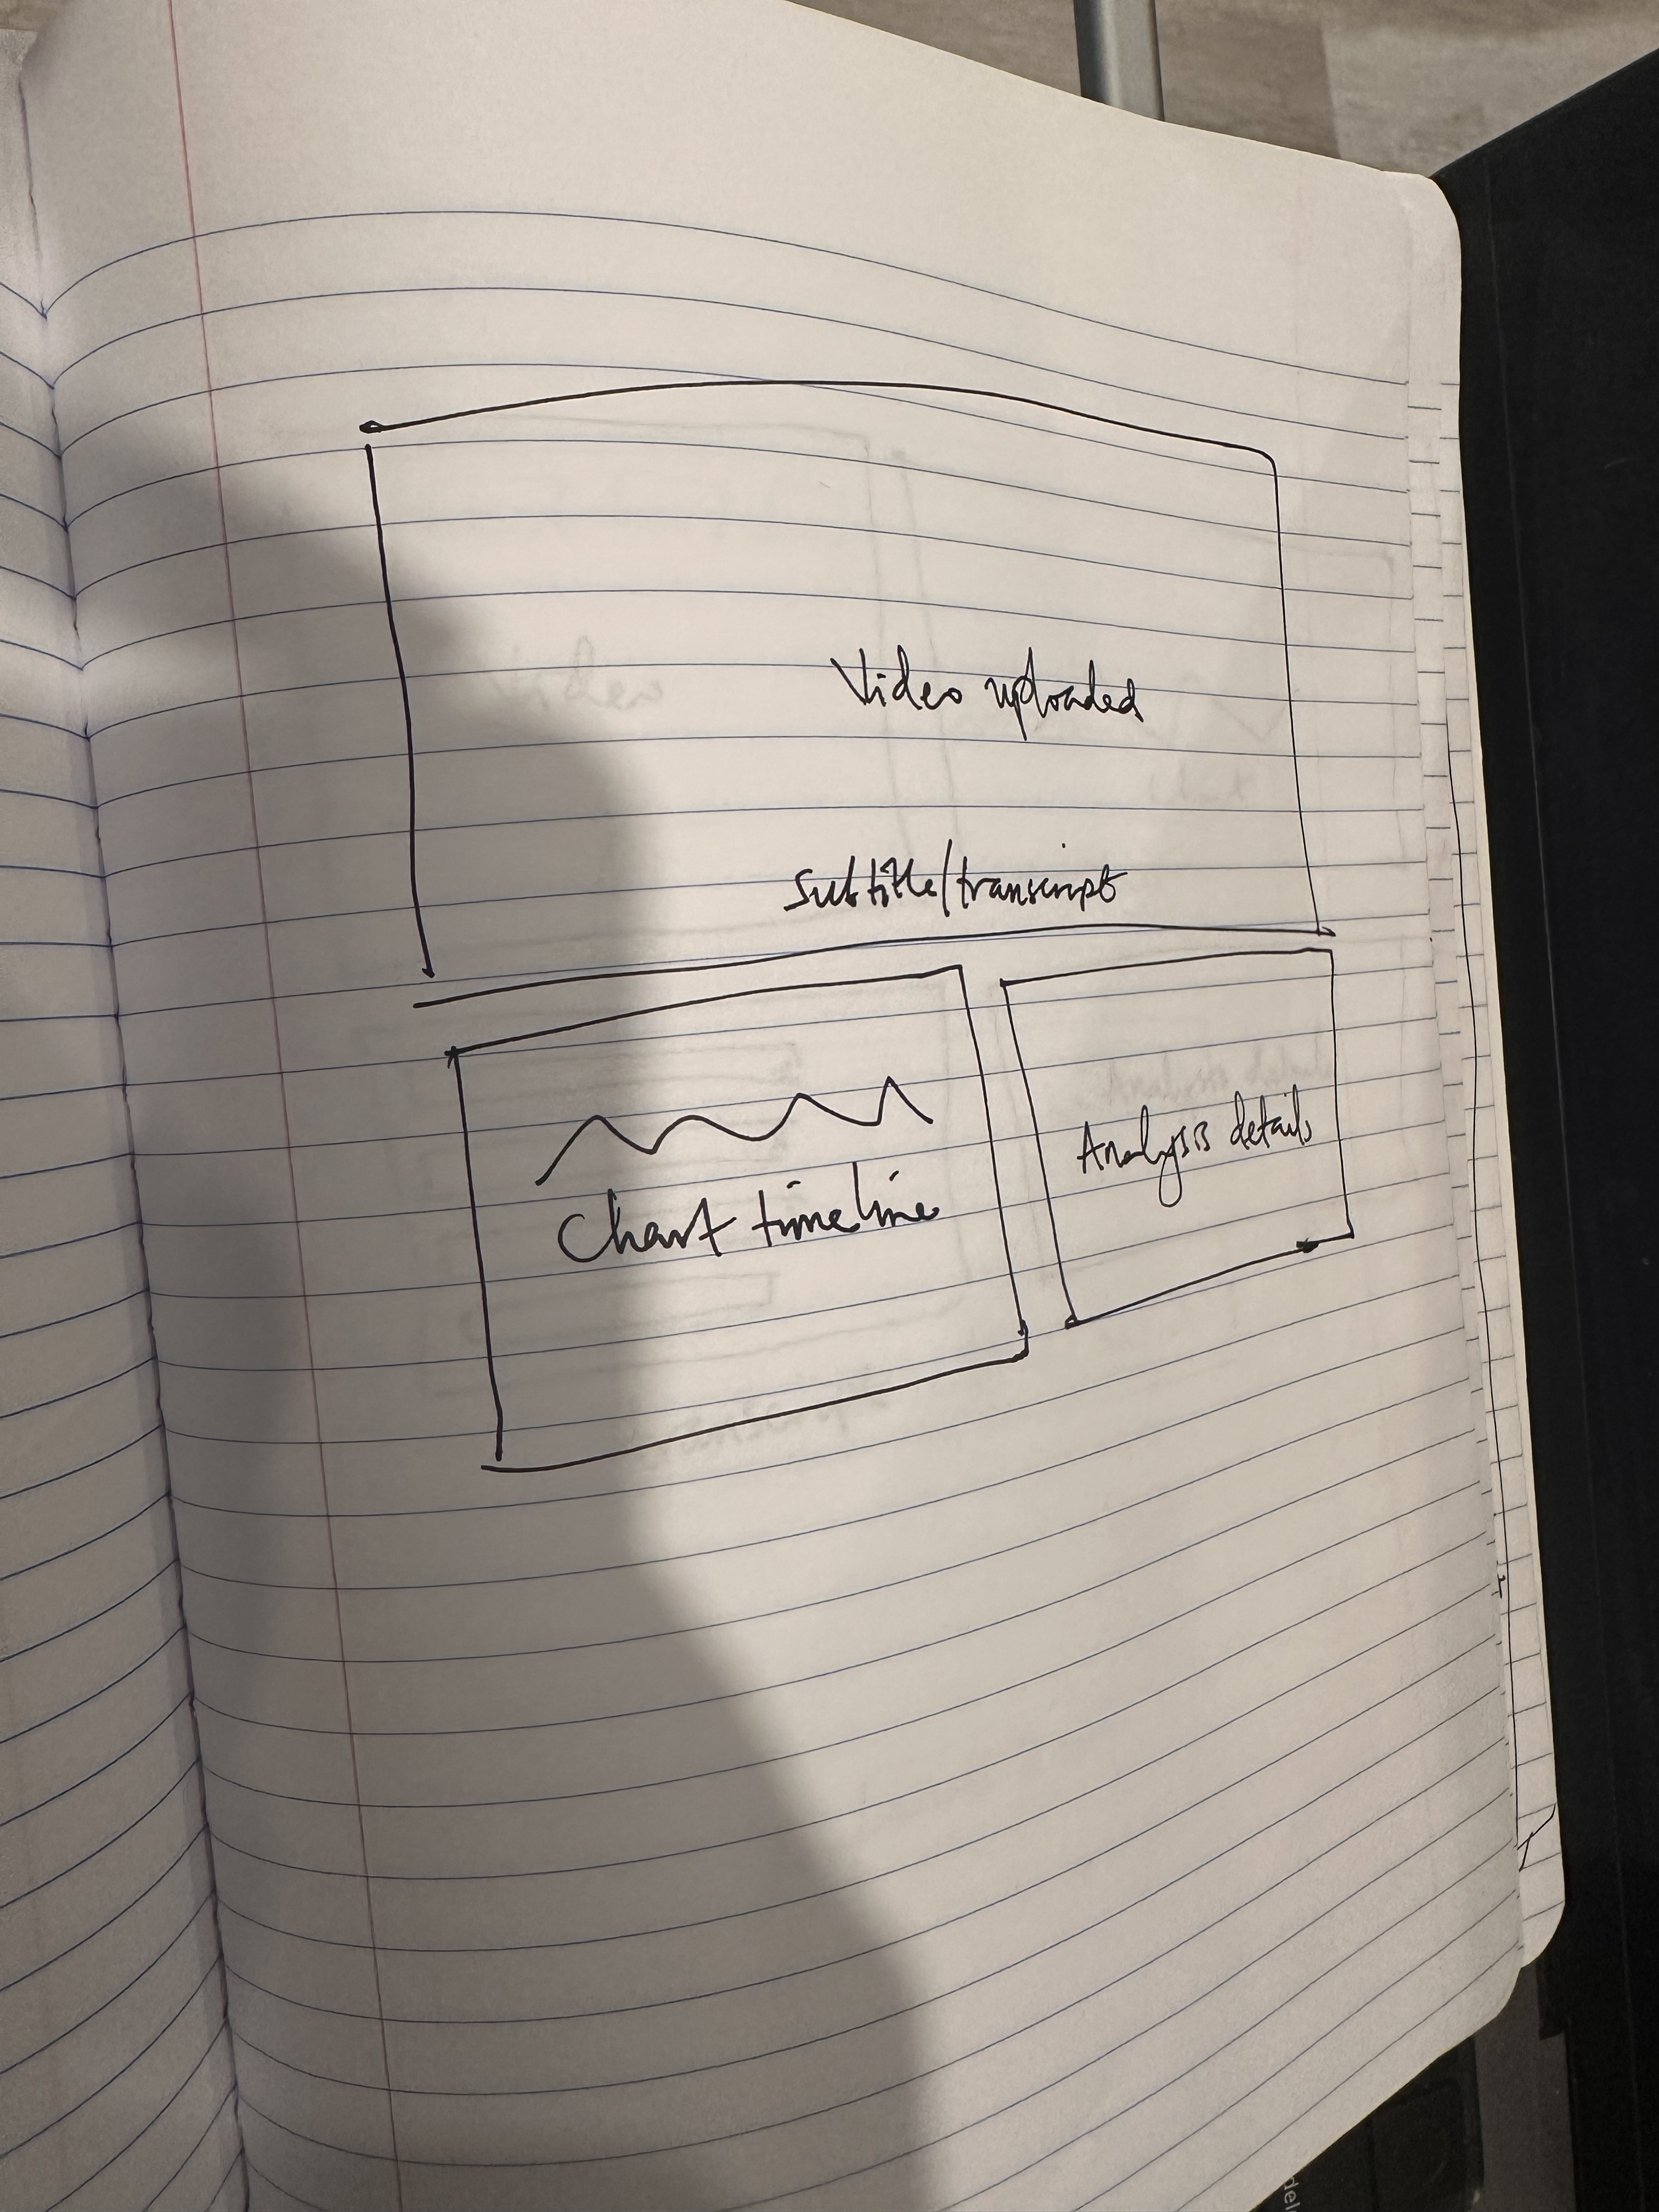 Video uploaded
Subtitle/transcript
Chart timeline
Analysis details